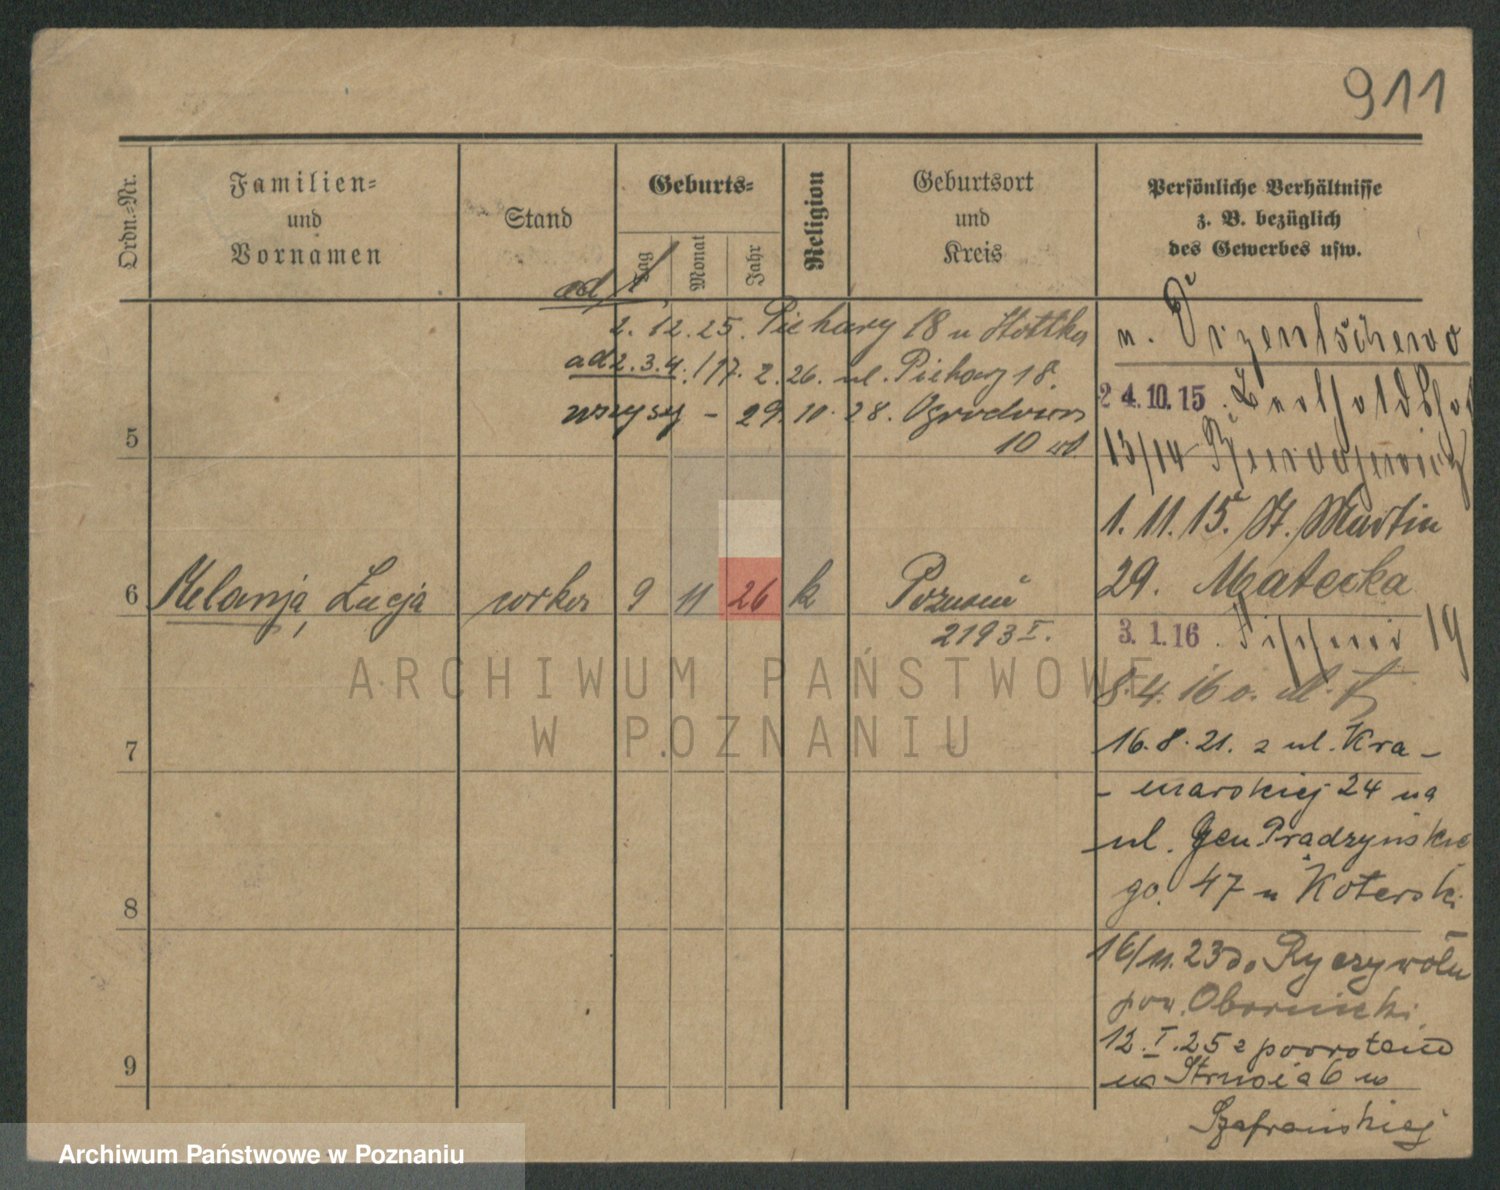 911
Ordn.=Nr.
Familien=
und
Vornamen
Stand
Geburts=
Tag
Monat
Jahr
Religion
Geburtsort
und
Kreis
Persönliche Verhältnisse
z. B. bezüglich
des Gewerbes usw.
ad 1
2. 12. 25. Piekary 18 u
ad 2. 3. 4. / 17. 2. 26. ul. Piekary 18.
wszyscy - 29. 10. 28. Ogrodowa
10
5
6 Melanja, Łucja córka 9 11 26 k Poznań
2193 I.
7
8
9
24.10.15
13/14
1. 11. 15. St. Martin
29. Matecka
3. 1. 16 19
8. 4. 16
16. 8. 21. z ul. Kra-
- marskiej 24 na
ul. Gen Prądzyńskie
go. 47 u Koterski
16/11. 23 do Ryczywołu
pow. Obornicki
12. I. 25 z powrotem
na Strusia 6 u
Szafrańskiej
ARCHIWUM PAŃSTWOWE
W POZNANIU
Archiwum Państwowe w Poznaniu